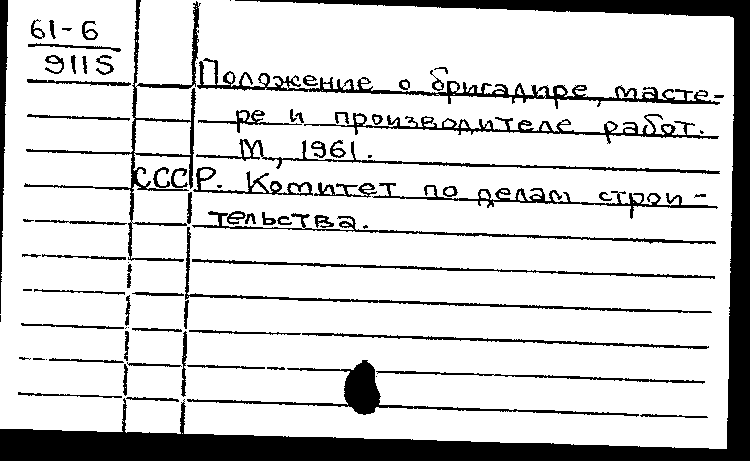 61-6
9115
Положение о бригадире, масте-
ре и производителе работ.
М, 1961.
СССР. Комитет по делам строи-
тельства.